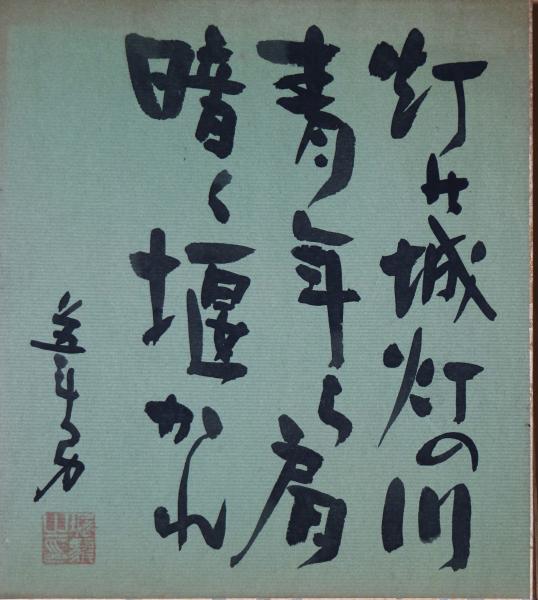 灯の城灯の川
青年ら肩
暗く堰かれ